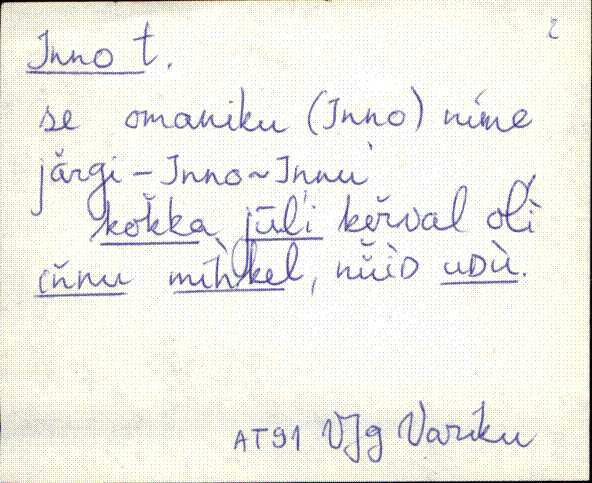 2
Inno t.
se omaniku (Inno) nime
järgi – Inno ~ Innu
kokka jūĺi keŕval oĺì
iňnu mihkel, nüìD uDù.
AT91 VJg Variku